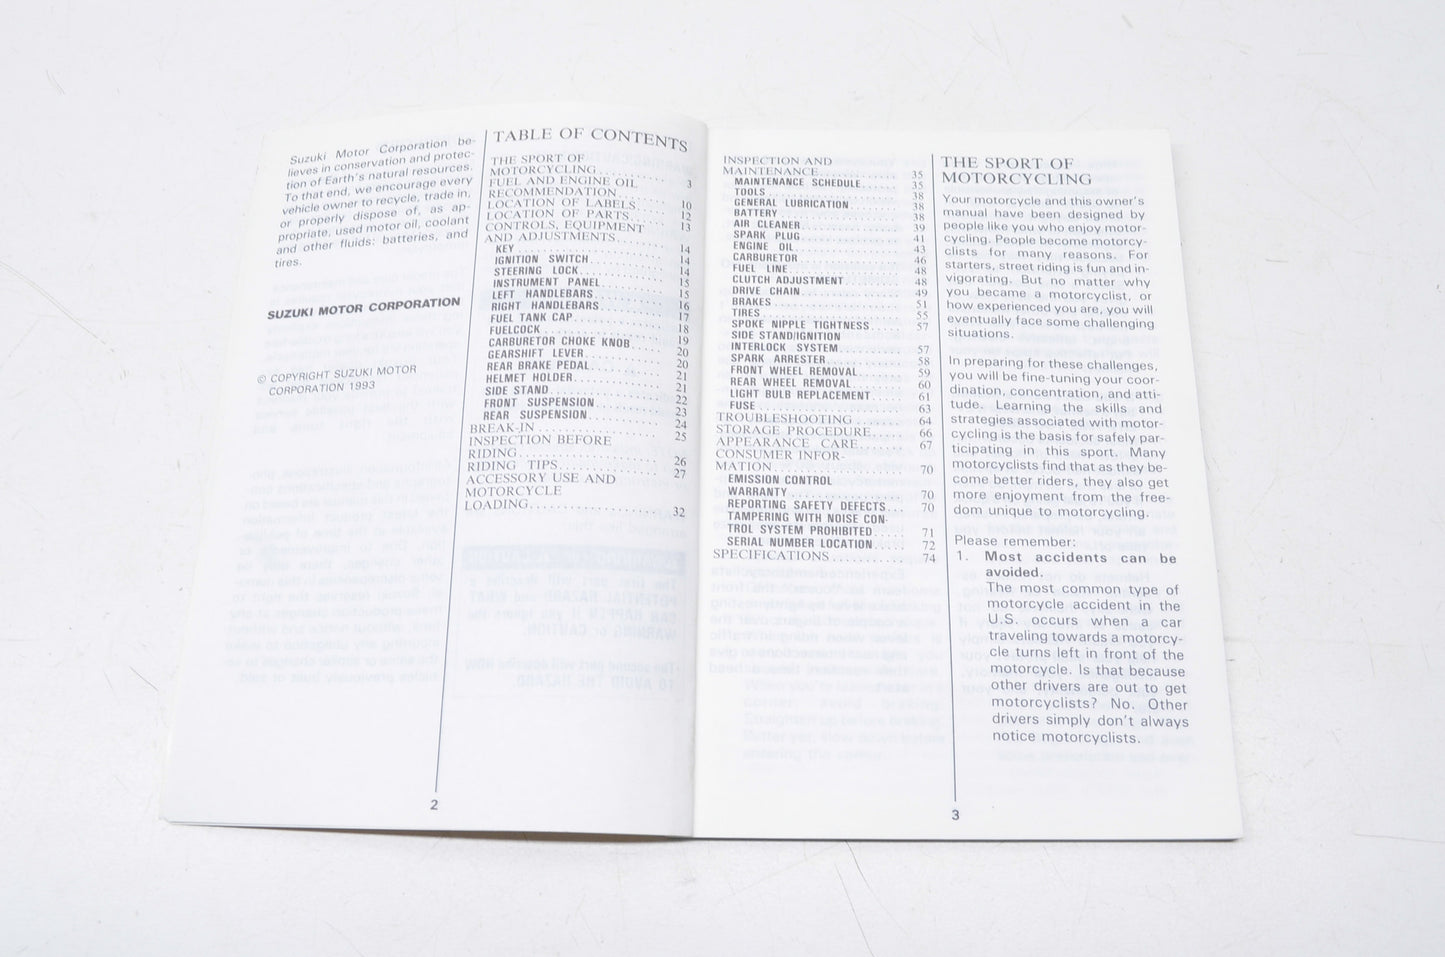 Suzuki Motor Corporation be-
lieves in conservation and protec-
tion of Earth's natural resources.
To that end, we encourage every
vehicle owner to recycle, trade in,
or properly dispose of, as ap-
propriate, used motor oil, coolant
and other fluids: batteries, and
tires.
SUZUKI MOTOR CORPORATION
© COPYRIGHT SUZUKI MOTOR
CORPORATION 1993
TABLE OF CONTENTS
THE SPORT OF
MOTORCYCLING.......... 3
FUEL AND ENGINE OIL
RECOMMENDATION....... 10
LOCATION OF LABELS..... 12
LOCATION OF PARTS...... 13
CONTROLS, EQUIPMENT
AND ADJUSTMENTS....... 14
KEY.................... 14
IGNITION SWITCH......... 14
STEERING LOCK........... 15
INSTRUMENT PANEL....... 15
LEFT HANDLEBARS........ 16
RIGHT HANDLEBARS....... 17
FUEL TANK CAP.......... 18
FUELCOCK............... 19
CARBURETOR CHOKE KNOB.... 20
GEARSHIFT LEVER......... 20
REAR BRAKE PEDAL........ 21
HELMET HOLDER........... 21
SIDE STAND.............. 22
FRONT SUSPENSION........ 23
REAR SUSPENSION......... 24
BREAK-IN................ 25
INSPECTION BEFORE
RIDING.................. 26
RIDING TIPS............. 27
ACCESSORY USE AND
MOTORCYCLE
LOADING................. 32
2
INSPECTION AND
MAINTENANCE............ 35
MAINTENANCE SCHEDULE...... 35
TOOLS.................. 38
GENERAL LUBRICATION....... 38
BATTERY................ 38
AIR CLEANER............. 39
SPARK PLUG.............. 41
ENGINE OIL.............. 43
CARBURETOR.............. 46
FUEL LINE............... 48
CLUTCH ADJUSTMENT....... 48
DRIVE CHAIN............. 49
BRAKES.................. 51
TIRES................... 55
SPOKE NIPPLE TIGHTNESS..... 57
SIDE STAND/IGNITION
INTERLOCK SYSTEM......... 57
SPARK ARRESTER........... 58
FRONT WHEEL REMOVAL...... 59
REAR WHEEL REMOVAL....... 60
LIGHT BULB REPLACEMENT..... 61
FUSE.................... 63
TROUBLESHOOTING......... 64
STORAGE PROCEDURE..... 66
APPEARANCE CARE........ 67
CONSUMER INFOR-
MATION.................. 70
EMISSION CONTROL
WARRANTY................ 70
REPORTING SAFETY DEFECTS... 70
TAMPERING WITH NOISE CON-
TROL SYSTEM PROHIBITED..... 71
SERIAL NUMBER LOCATION..... 72
SPECIFICATIONS.......... 74
THE SPORT OF
MOTORCYCLING
Your motorcycle and this owner's
manual have been designed by
people like you who enjoy motor-
cycling. People become motorcy-
clists for many reasons. For
starters, street riding is fun and in-
vigorating. But no matter why
you became a motorcyclist, or
how experienced you are, you will
eventually face some challenging
situations.
In preparing for these challenges,
you will be fine-tuning your coor-
dination, concentration, and atti-
tude. Learning the skills and
strategies associated with motor-
cycling is the basis for safely par-
ticipating in this sport. Many
motorcyclists find that as they be-
come better riders, they also get
more enjoyment from the free-
dom unique to motorcycling.
Please remember:
1. Most accidents can be
avoided.
The most common type of
motorcycle accident in the
U.S. occurs when a car
traveling towards a motorcy-
cle turns left in front of the
motorcycle. Is that because
other drivers are out to get
motorcyclists? No. Other
drivers simply don't always
notice motorcyclists.
3